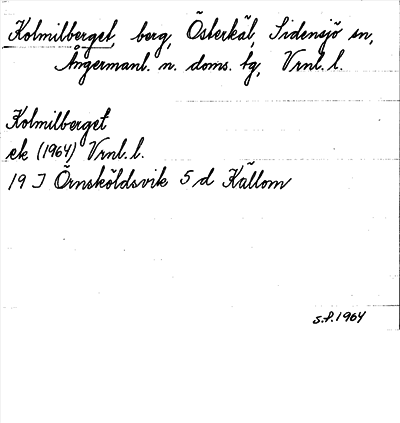 Kolmilberget, berg, Österkäl, Sidensjö sn,
Ångermanl. n. doms. tg, Vrnl. l.
Kolmilberget
ek (1964) Vrnl. l.
19 J Örnsköldsvik 5 d Källom
S.P. 1964